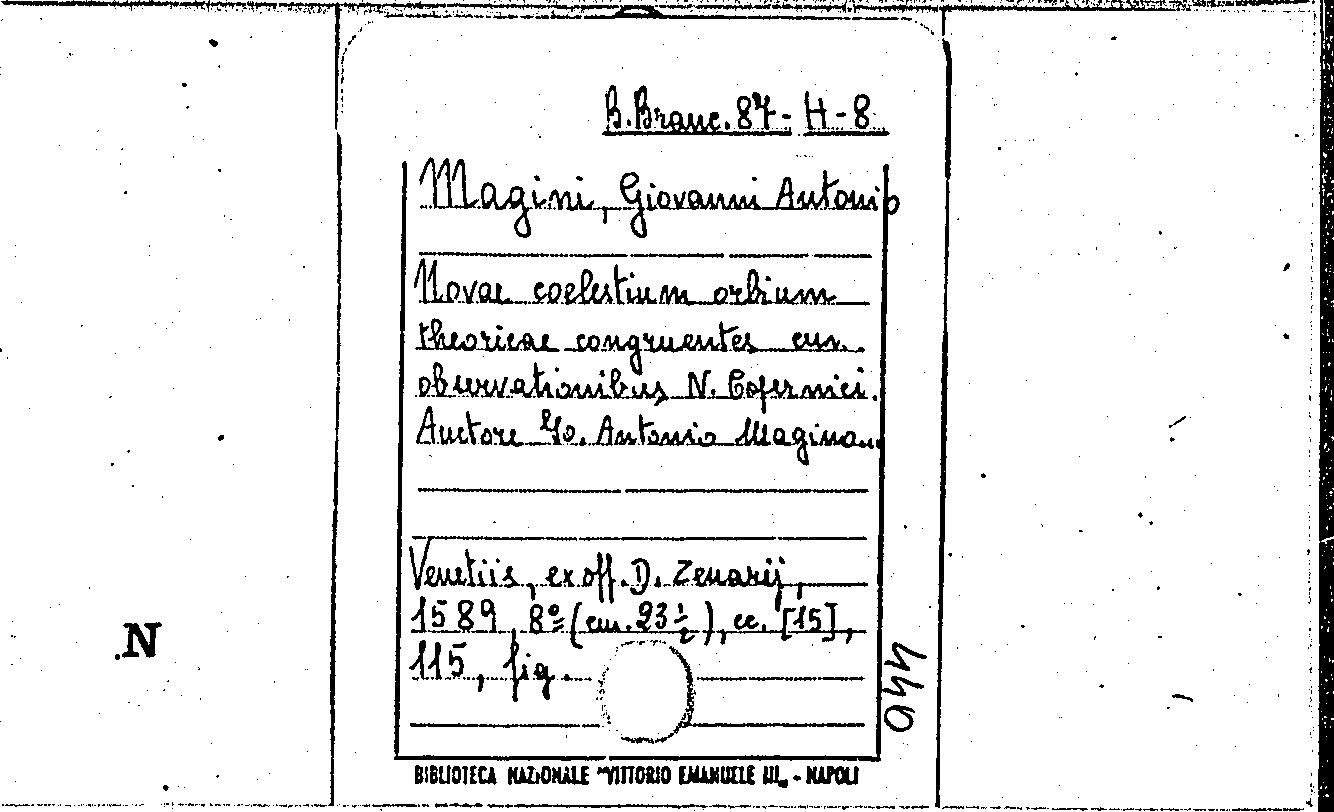 B.Branc. 87- H-8
Magini, Giovanni Antonio
Novae coelestium orbium
theoricae congruentes cum
observationibus N. Copernici.
Auctore Io. Antonio Magino...
Venetiis, ex off. D. Zenarij,
1589, 8º (cm. 23 ½), cc. [15],
115, fig.
440
N
BIBLIOTECA NAZIONALE "VITTORIO EMANUELE III„ - NAPOLI